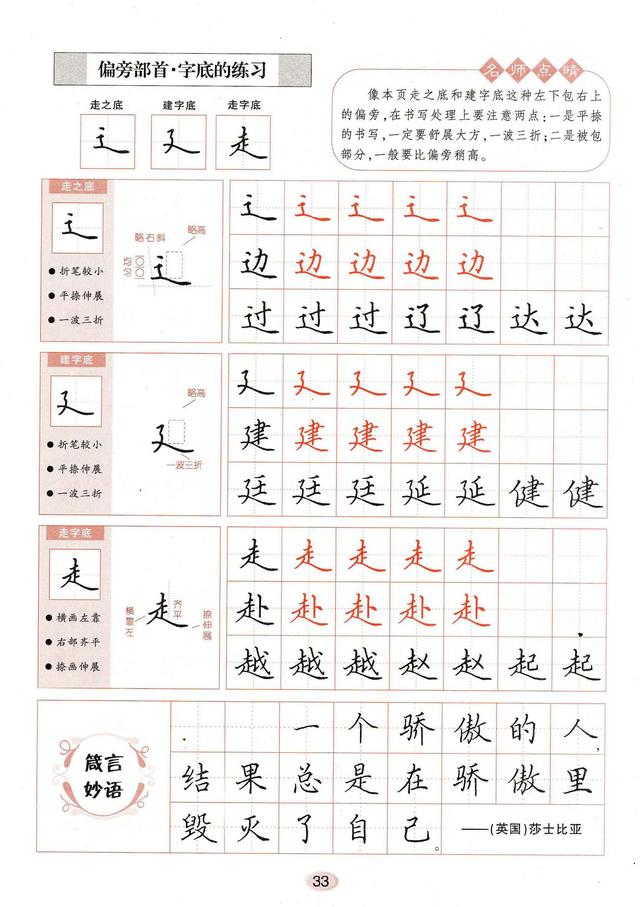 偏旁部首·字底的练习
走之底 建字底 走字底
辶 廴 走
名师点睛
像本页走之底和建字底这种左下包右上
的偏旁,在书写处理上要注意两点:一是平捺
的书写,一定要舒展大方,一波三折;二是被包
部分,一般要比偏旁稍高。
走之底
辶
●折笔较小
●平捺伸展
●一波三折
略右斜
略高
均匀
辶
辶 辶 辶 辶 辶
边 边 边 边 边
过 过 过 辽 辽 达 达
建字底
廴
●折笔较小
●平捺伸展
●一波三折
略高
廴
一波三折
廴 廴 廴 廴 廴
建 建 建 建 建
廷 廷 廷 延 延 健 健
走字底
走
●横画左靠
●右部齐平
●捺画伸展
横靠左
走
齐平
捺伸展
走 走 走 走 走
赴 赴 赴 赴 赴
越 越 越 赵 赵 起 起
箴言
妙语
一个骄傲的人,
结果总是在骄傲里
毁灭了自己。
——(英国)莎士比亚
33